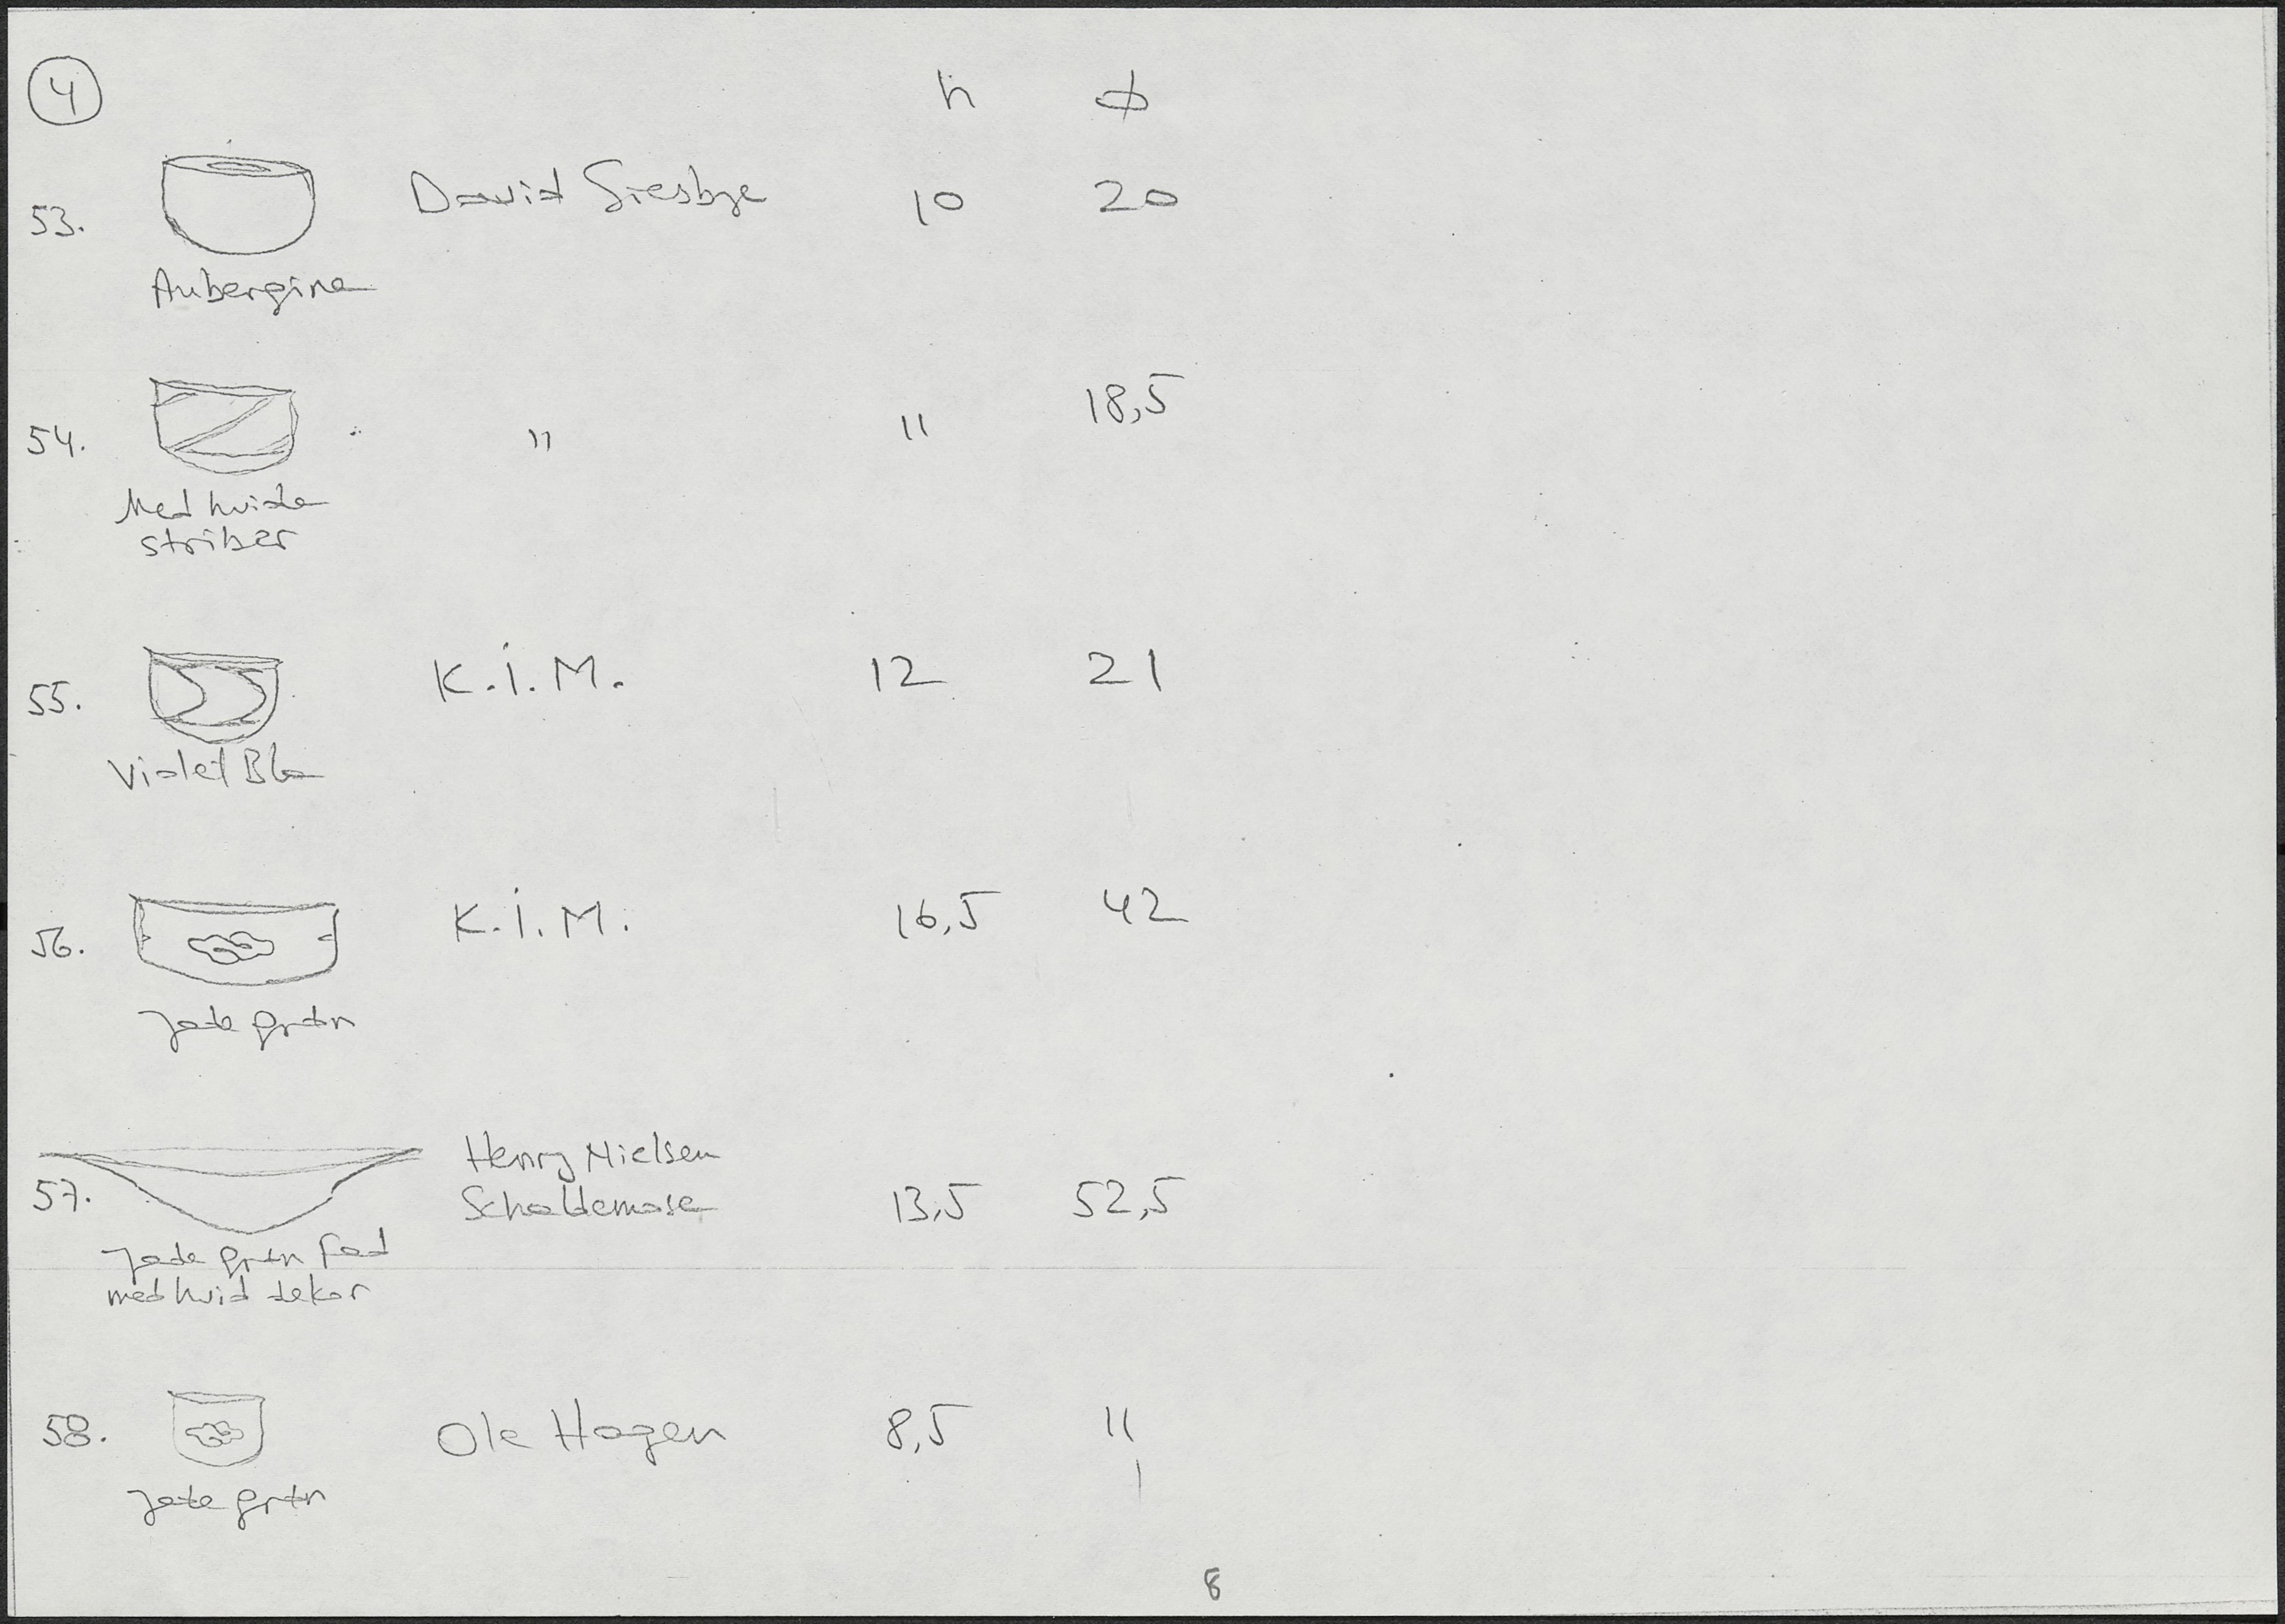 4
h ϕ
53. David Siesbye 10 20
Aubergine
54. " 11 18,5
Med hvide
striber
55. K.i.M. 12 21
Violet Blå
56. K.i.M. 16,5 42
Jade grøn
57. Henry Nielsen
Schaldemose 13,5 52,5
Jade grøn fad
med hvid dekor
58. Ole Hagen 8,5 11
Jade grøn
8